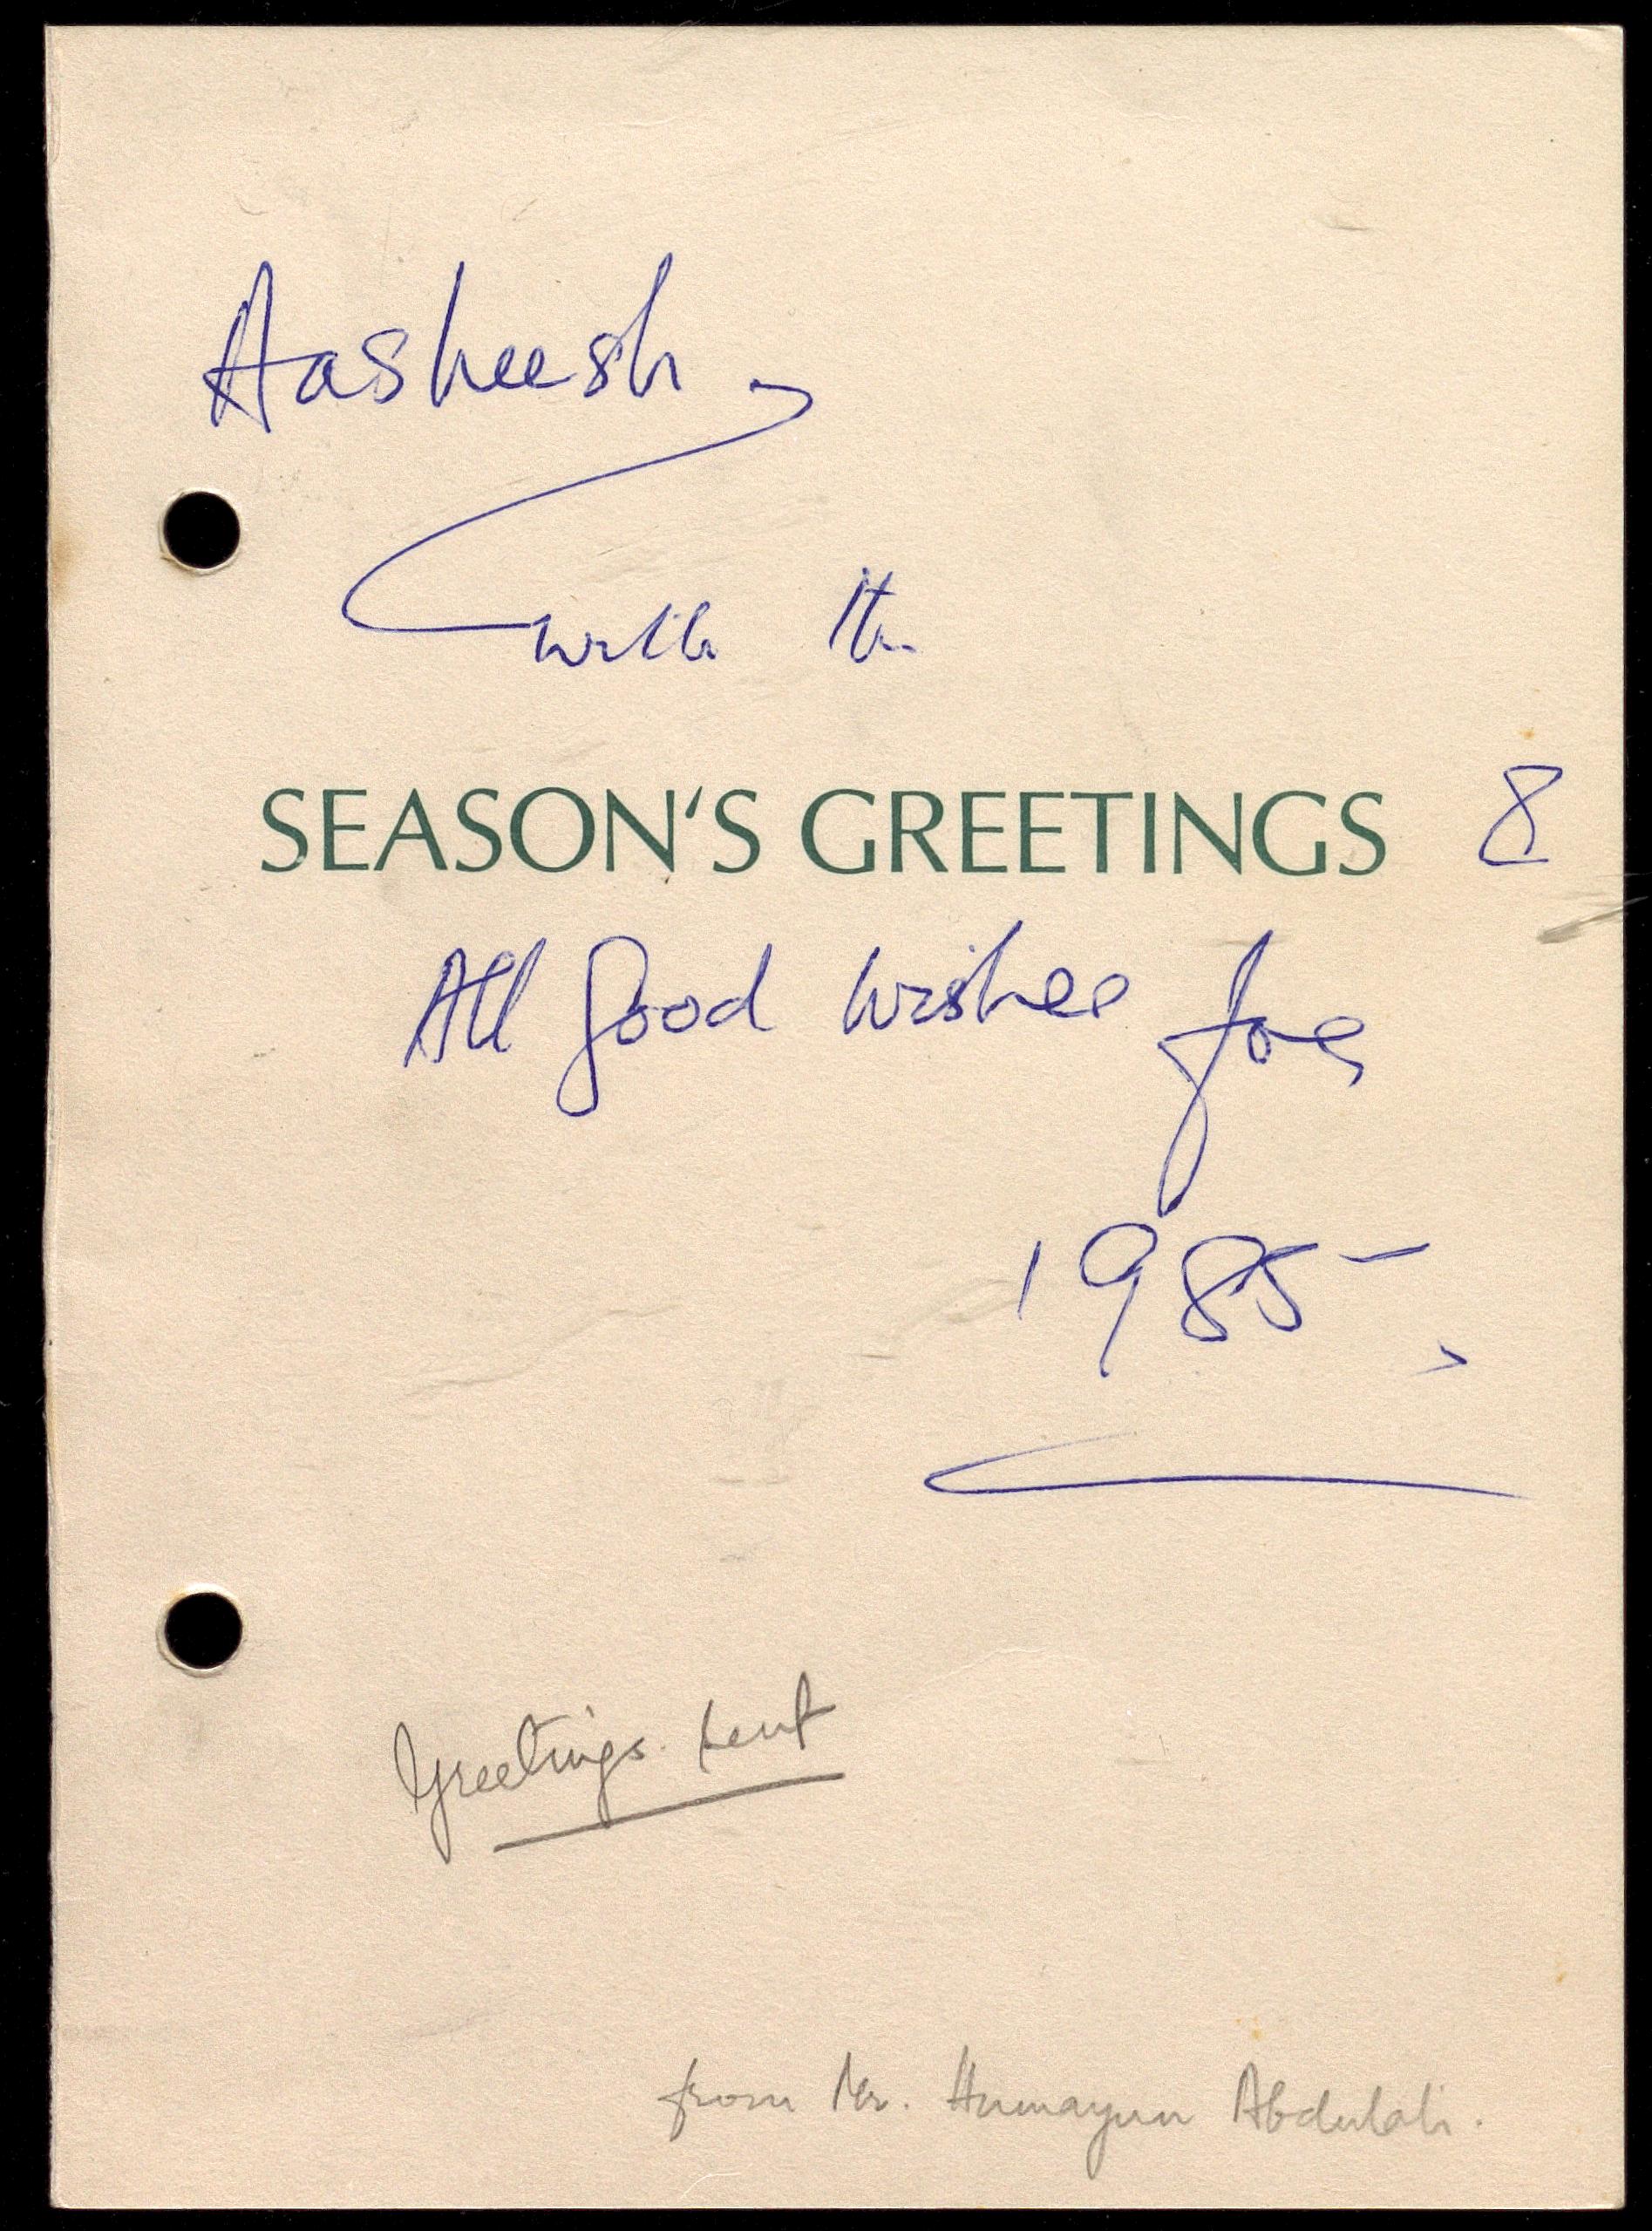 Aasheesh,
with the
SEASON'S GREETINGS &
All good wishes for
1985,
Greetings sent
from Mr. Humayun Abdulali.